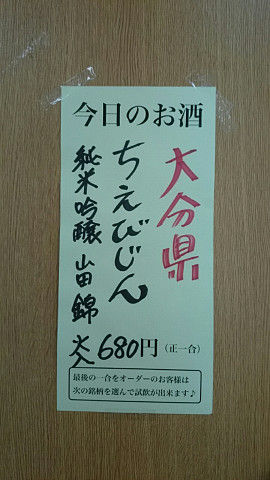 今日のお酒
大分県
ちえびじん
純米吟醸 山田錦 火入
680円(正一合)
最後の一合をオーダーのお客様は
次の銘柄を選んで試飲が出来ます♪